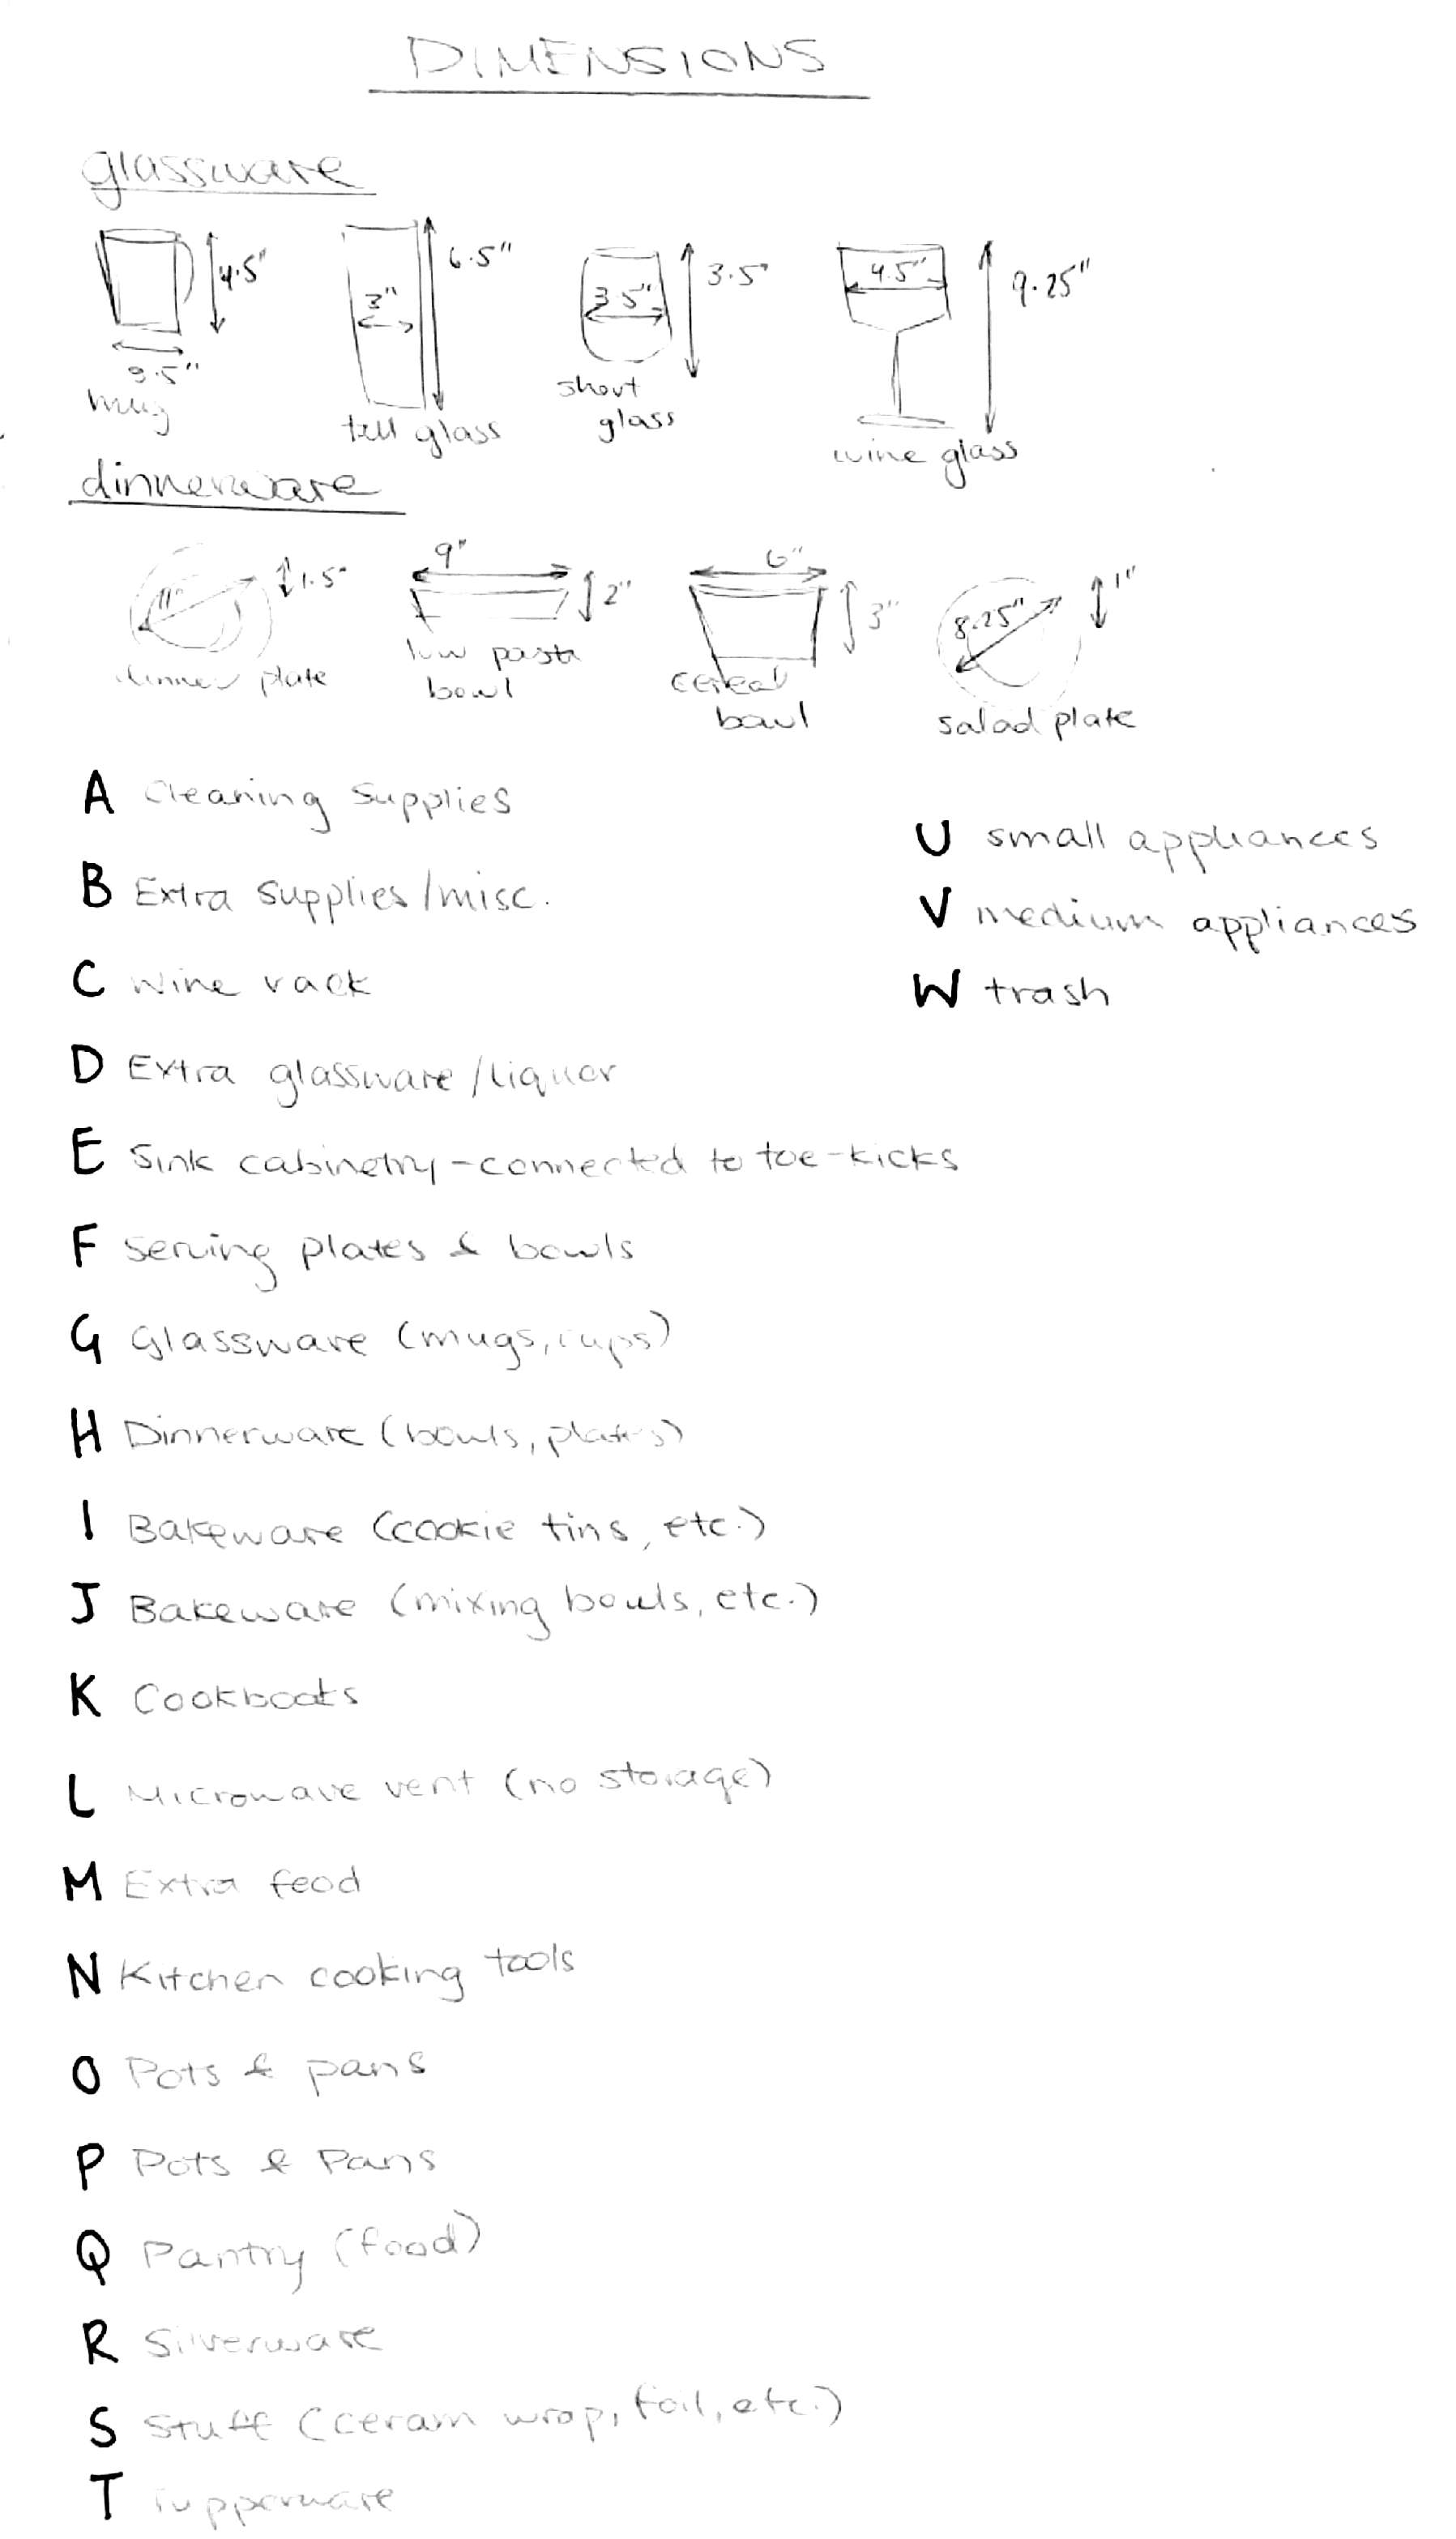 DIMENSIONS
glassware
4.5"
3.5"
mug
6.5"
3"
tall glass
3.5"
3.5"
short
glass
4.5"
9.25"
wine glass
dinnerware
11"
1.5"
dinner plate
9"
2"
low pasta
bowl
6"
3"
cereal
bowl
8.25"
1"
salad plate
A Cleaning supplies
B Extra supplies/misc.
C Wine rack
D Extra glassware/liquor
E Sink cabinetry-connected to toe-kicks
F Serving plates & bowls
G Glassware (mugs, cups)
H Dinnerware (bowls, plates)
I Bakeware (cookie tins, etc.)
J Bakeware (mixing bowls, etc.)
K Cookbooks
L Microwave vent (no storage)
M Extra food
N Kitchen cooking tools
O Pots & pans
P Pots & Pans
Q Pantry (food)
R Silverware
S Stuff (ceram wrap, foil, etc.)
T Tupperware
U small appliances
V medium appliances
W trash